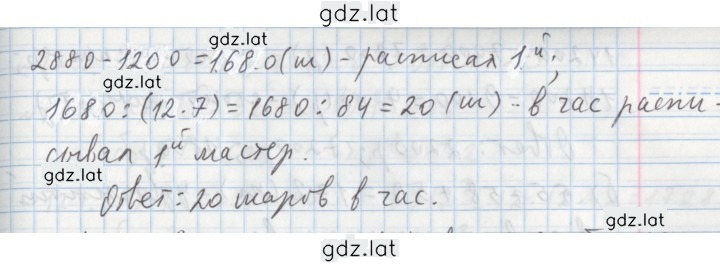 gdz.lat
gdz.lat
2880-1200=1680(ш)-расписал 1й;
1680:(12·7)=1680:84=20(ш)-в час распи-
сывал 1й мастер.
gdz.lat
gdz.lat
Ответ: 20 шаров в час.
gdz.lat